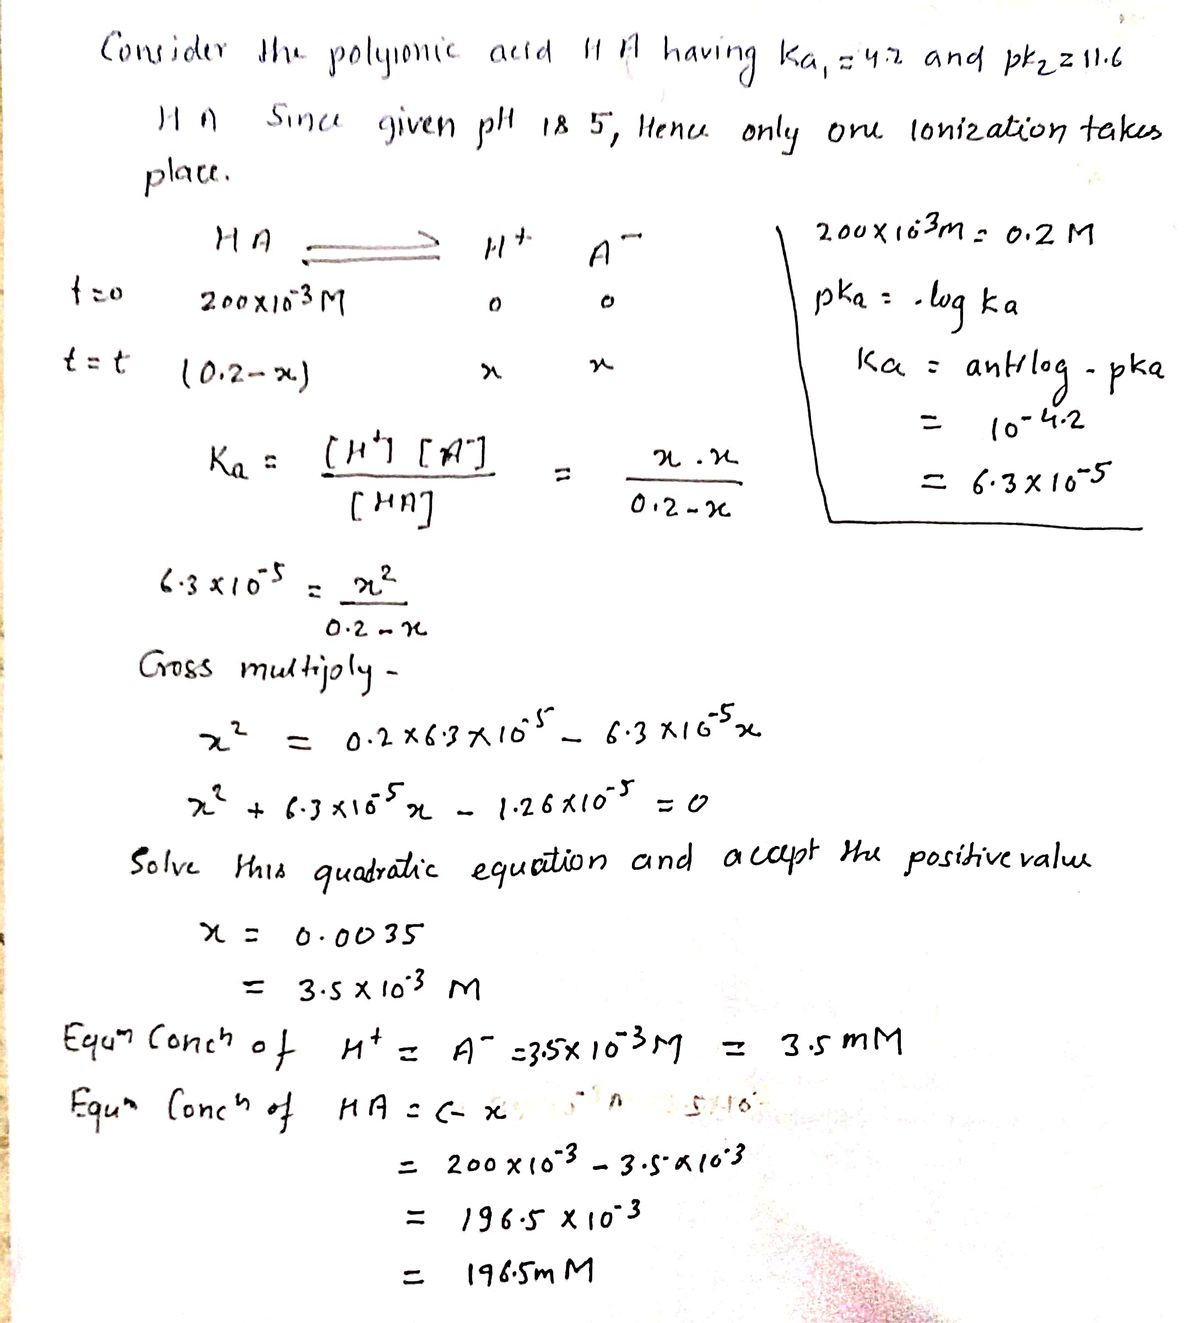 Consider the polyionic acid H A having Ka₁ = 4.2 and pk₂ = 11.6
H A Since given pH is 5, Hence only one ionization takes
place.
HA ⇌ H⁺ A⁻
t=0 200×10⁻³M 0 0
t=t (0.2-x) x x
Ka = [H⁺] [A⁻] / [HA] = x . x / 0.2-x
200×10⁻³m = 0.2 M
pka = -log ka
Ka = antilog - pka
= 10⁻⁴·²
= 6.3×10⁻⁵
6.3×10⁻⁵ = x² / 0.2-x
Cross multiply -
x² = 0.2×6.3×10⁻⁵ - 6.3×10⁻⁵x
x² + 6.3×10⁻⁵x - 1.26×10⁻⁵ = 0
Solve this quadratic equation and accept the positive value
x = 0.0035
= 3.5×10⁻³ M
Equm Concn of H⁺ = A⁻ =3.5×10⁻³M = 3.5mM
Equm Concn of HA = C- x
= 200×10⁻³ - 3.5×10⁻³
= 196.5×10⁻³
= 196.5mM